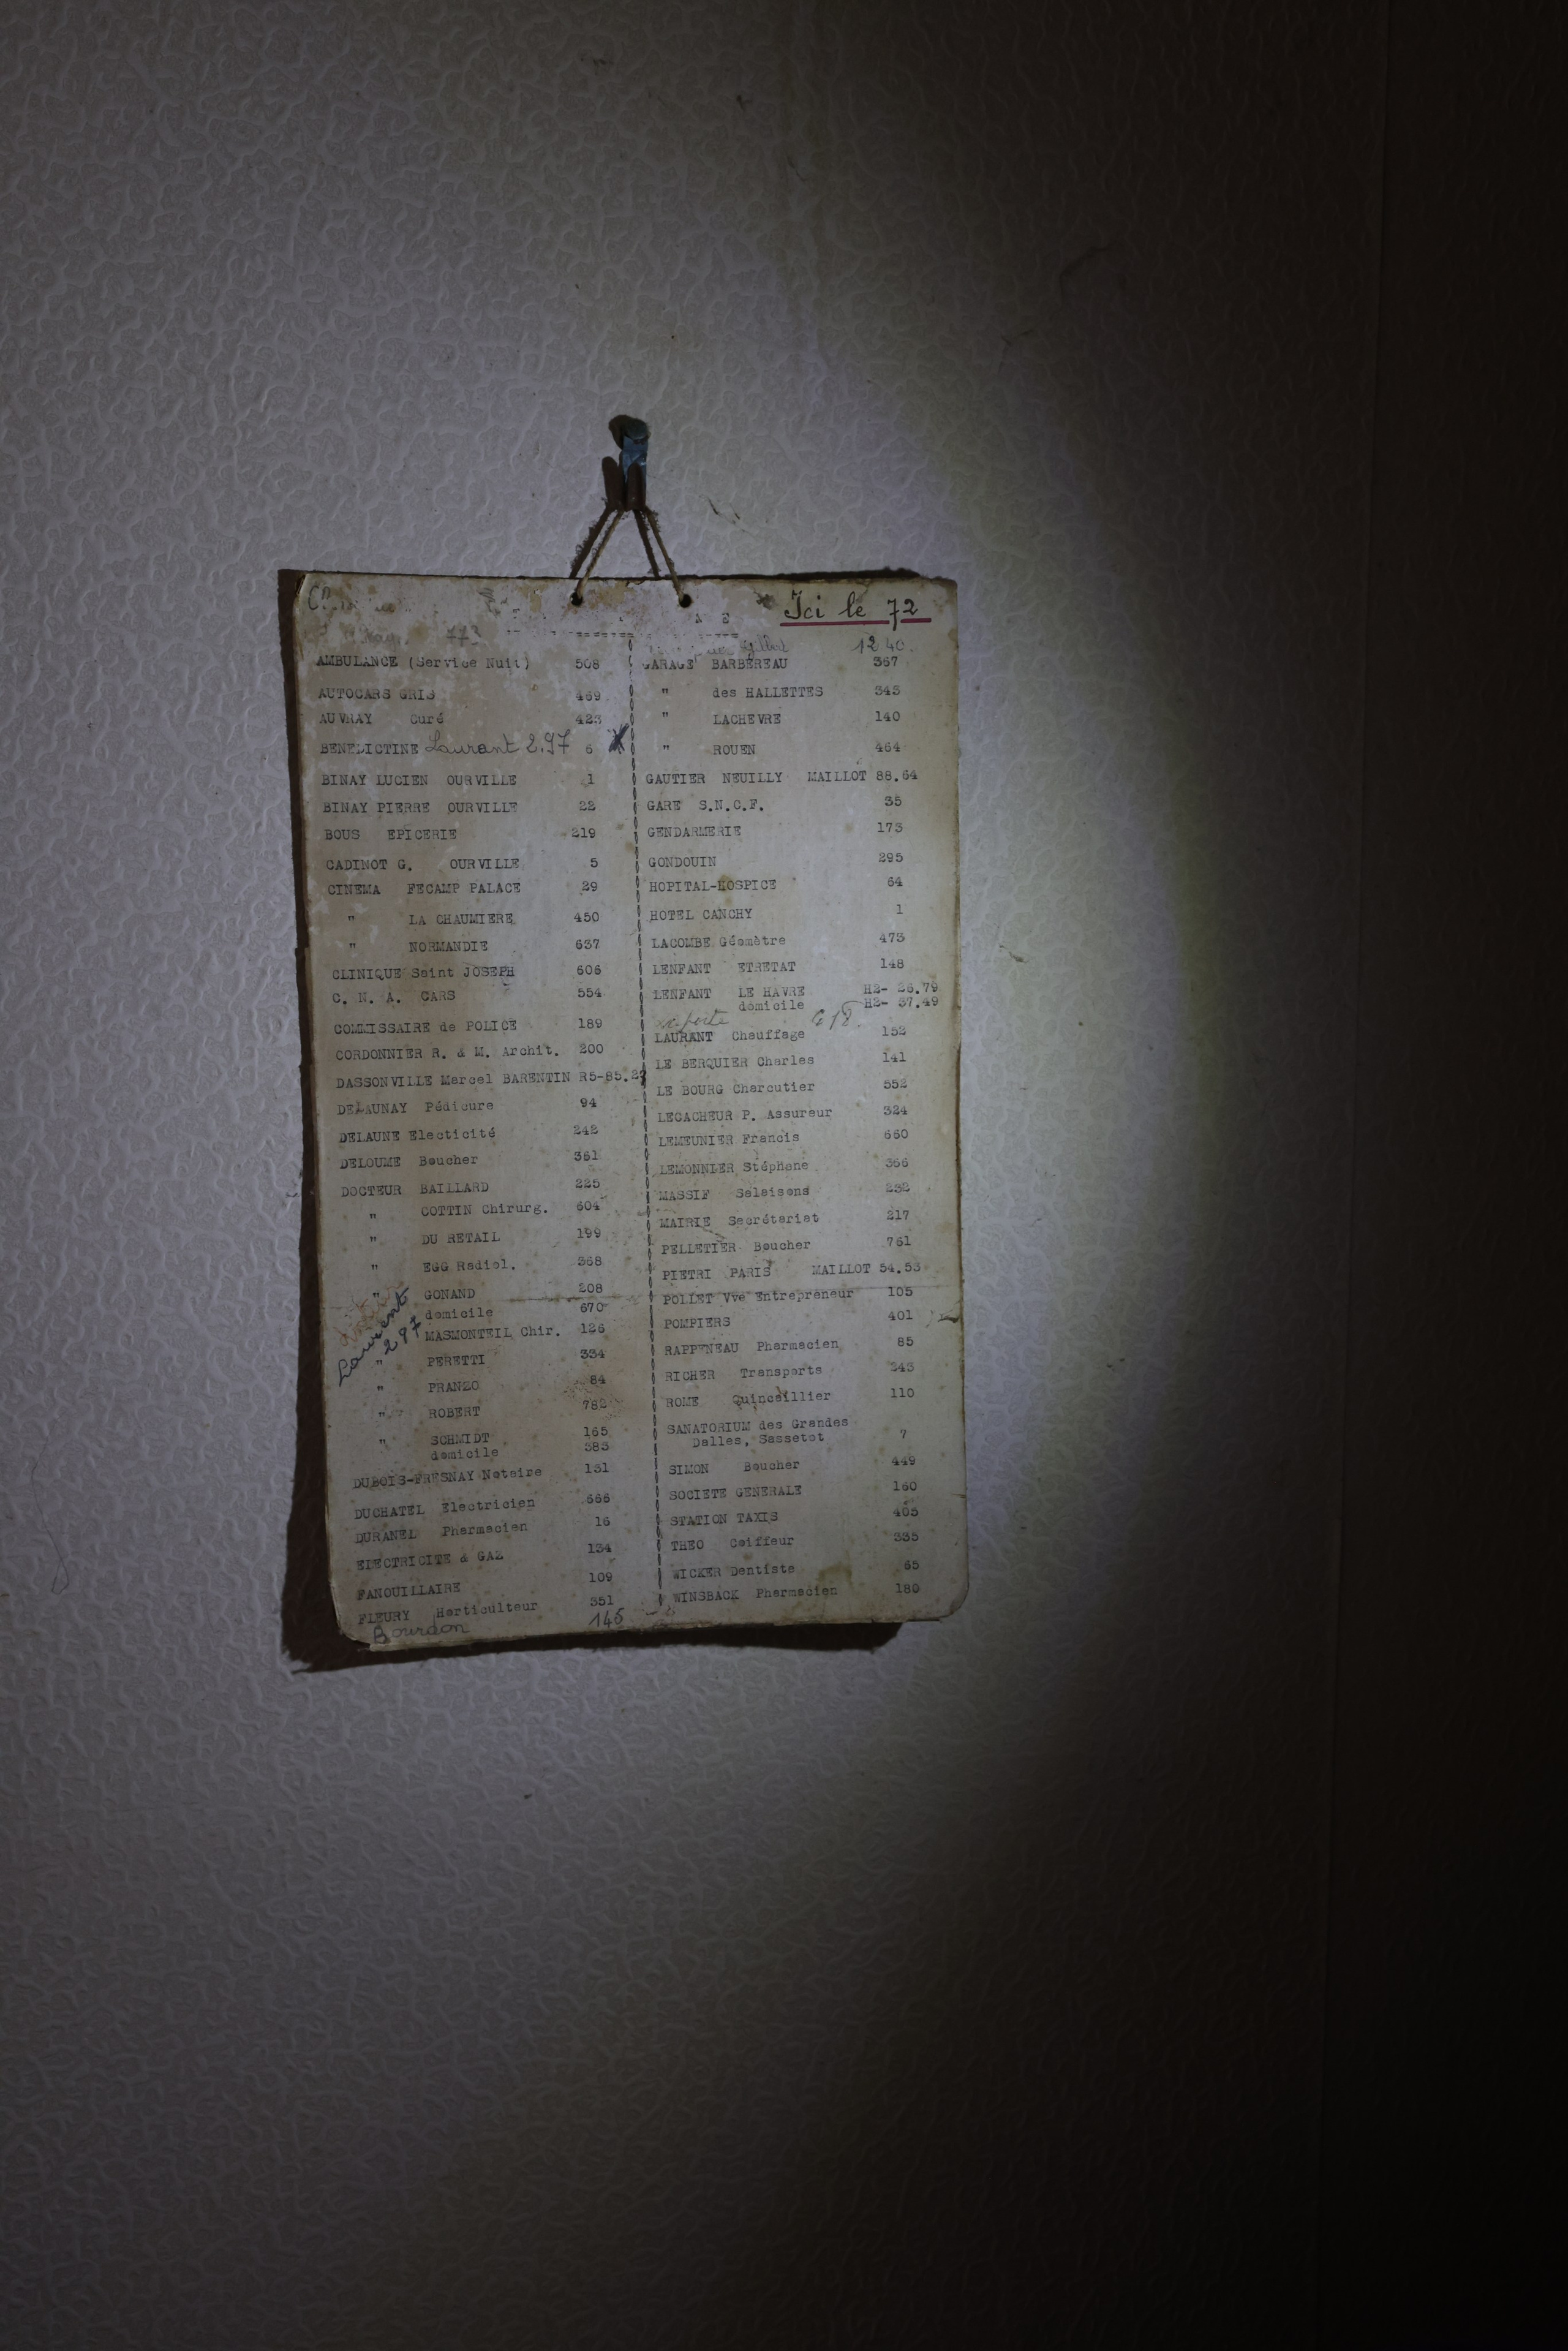 Ici le 72
773
1240.
AMBULANCE (Service Nuit) 508
AUTOCARS GRIS 469
AUVRAY Curé 423
BENEDICTINE Laurant 2.97 6
BINAY LUCIEN OURVILLE 1
BINAY PIERRE OURVILLE 22
BOUS EPICERIE 219
CADINOT G. OURVILLE 5
CINEMA FECAMP PALACE 29
" LA CHAUMIERE 450
" NORMANDIE 637
CLINIQUE Saint JOSEPH 606
C. N. A. CARS 554
COMMISSAIRE de POLICE 189
CORDONNIER R. & M. Archit. 200
DASSONVILLE Marcel BARENTIN R5-85.
DELAUNAY Pédicure 94
DELAUNE Electicité 242
DELOUME Boucher 361
DOCTEUR BAILLARD 225
" COTTIN Chirurg. 604
" DU RETAIL 199
" EGG Radiol. 368
" GONAND 208
domicile 670
MASMONTEIL Chir. 126
Laurent 297
" PERETTI 334
" PRANZO 84
" ROBERT 782
" SCHMIDT 165
domicile 383
DUBOIS-FRESNAY Notaire 131
DUCHATEL Electricien 666
DURANEL Pharmacien 16
ELECTRICITE & GAZ 134
FANOUILLAIRE 109
FLEURY Horticulteur 351
Bourdon 145
GARAGE BARBEREAU 367
" des HALLETTES 343
" LACHEVRE 140
" ROUEN 464
GAUTIER NEUILLY MAILLOT 88.64
GARE S.N.C.F. 35
GENDARMERIE 173
GONDOUIN 295
HOPITAL-HOSPICE 64
HOTEL CANCHY 1
LACOMBE Géomètre 473
LENFANT ETRETAT 148
LENFANT LE HAVRE H2- 26.79
domicile H2- 37.49
LAURANT Chauffage 152
LE BERQUIER Charles 141
LE BOURG Charcutier 552
LECACHEUR P. Assureur 324
LEMEUNIER Francis 660
LEMONNIER Stéphane 366
MASSIF Salaisons 232
MAIRIE Secrétariat 217
PELLETIER Boucher 761
PIETRI PARIS MAILLOT 54.53
POLLET Vve Entrepreneur 105
POMPIERS 401
RAPPENEAU Pharmacien 85
RICHER Transports 243
ROME Quincaillier 110
SANATORIUM des Grandes
Dalles, Sassetot 7
SIMON Boucher 449
SOCIETE GENERALE 160
STATION TAXIS 405
THEO Coiffeur 335
WICKER Dentiste 65
WINSBACK Pharmacien 180